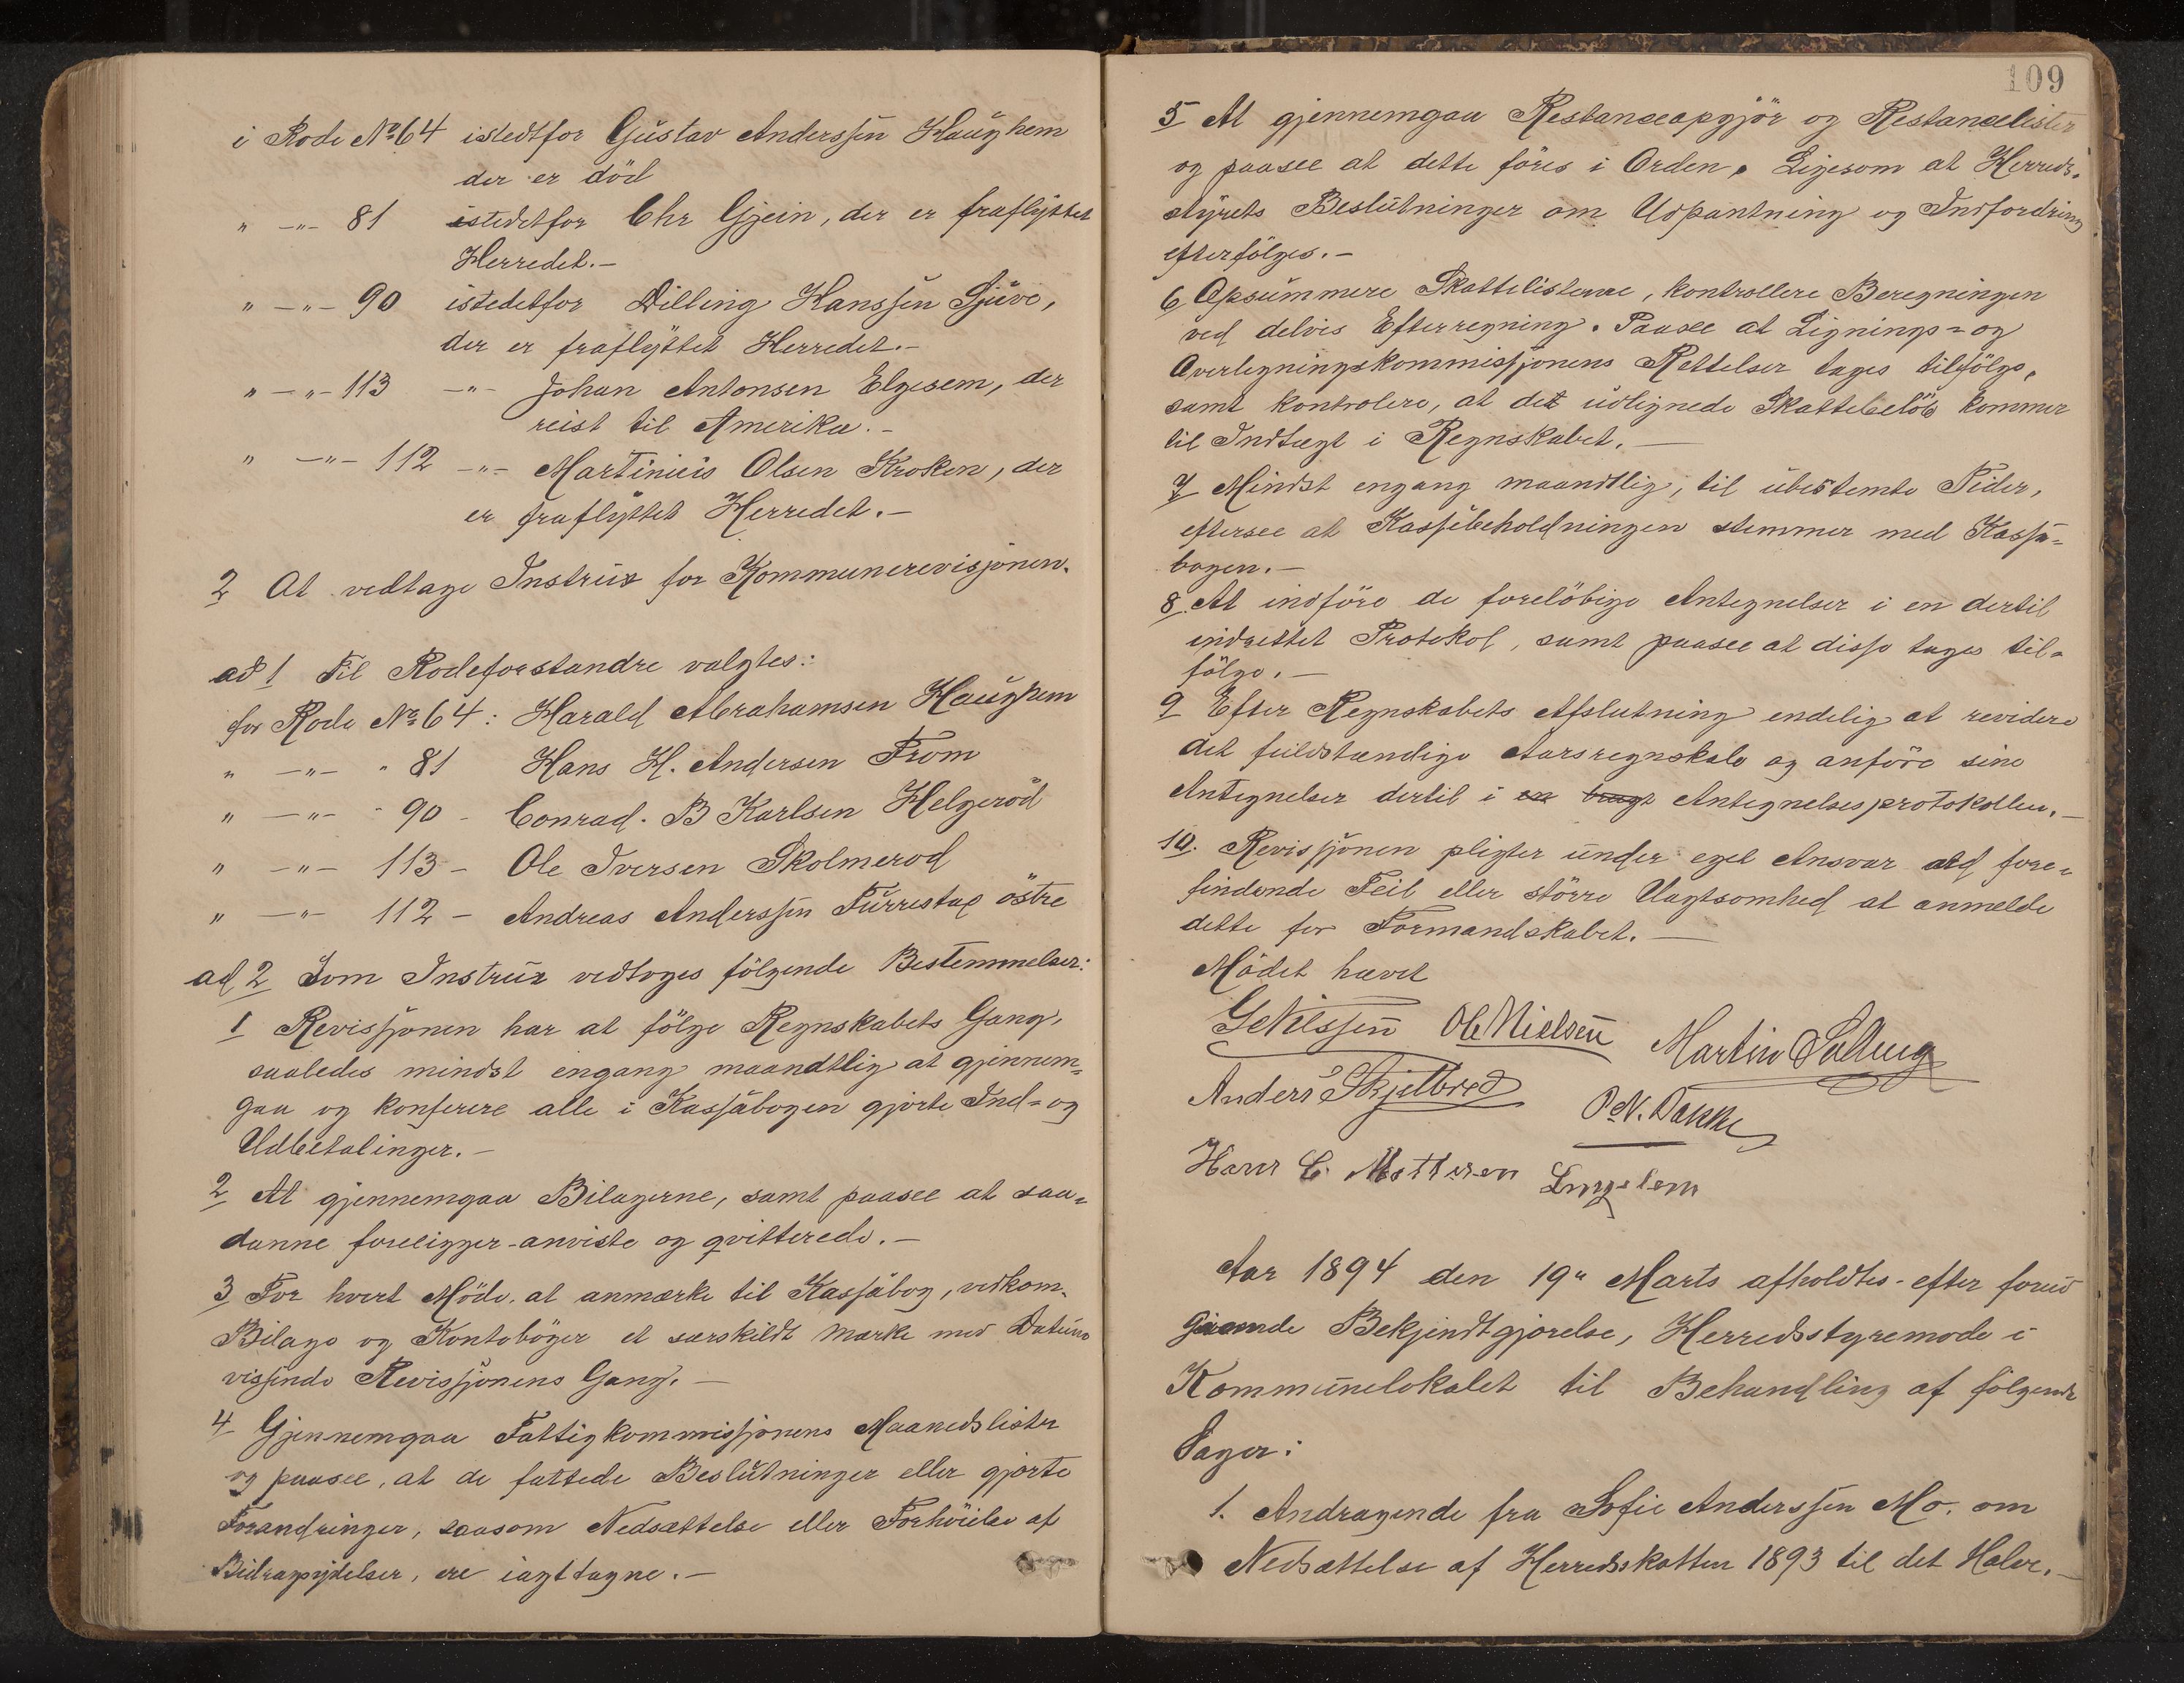 i Rode No 64 istedtfor Gustav Anderssen Haughem
der er död
" -"- 81 istedetfor Chr Gjein, der er fraflyttet
Herredet.-
" -"- 90 istedetfor Dilling Hanssen Sjuve,
der er fraflyttet Herredet.-
" -"- 113 -"- Johan Antonsen Elgesem, der
reist til Amerika.-
" -"- 112 -"- Martinius Olsen Kroken, der
er fraflyttet Herredet.-
2 At vedtage Instrux for Kommunerevisjonen.
ad 1 Til Rodeforstandre valgtes:
for Rode No 64: Harald Abrahamsen Haughem
" -"- " 81 Hans H. Andersen From
" -"- " 90 - Conrad. B Karlsen Helgeröd
" -"- 113 - Ole Iversen Skolmerod
" -"- 112 - Andreas Anderssen Furrestad östre
ad 2 Som Instrux vedtoges fölgende Bestemmelser:
1 Revissjonen har at fölge Regnskabets Gang,
saaledes mindst engang maandtlig at gjennem=
gaa og konferere alle i Kassabogen gjorte Ind= og
Udbetalinger.-
2 At gjennemgaa Bilagerne, samt paasee at saa=
danne foreligger-anviste og qvitterede.-
3 For hvert Möde, at anmærke til Kassabog, vedkom.
Bilage og Kontoböger et særskildt Mærke med Datum
vissende Revissjonens Gang.-
4 Gjennemgaa Fattigkommissjonens Maanedslister
og paasee, at de fattede Beslutninger eller gjorte
Forandringer, saasom Nedsættelse eller Forhöielse af
Bidragsydelser, ere iagttagne.-
109
5 At gjennemgaa Restanceopgjör og Restancelister
og paasee at dette föres i Orden, Ligesom at Herreds=
styrets Beslutninger om Udpantning og Indfordring
efterfölges.-
6 Opsummere Skattelisterne, kontrollere Beregningen
ved delvis Efterregning. Paasee at Lignings= og
Overligningskommissjonens Rettelser tages tilfölge,
samt kontrolere, at det udlignede Skattebelöb kommer
til Indtægt i Regnskabet.-
7 Mindst engang maandtlig, til ubestemte Tider,
eftersee at Kassebeholdningen stemmer med Kassa=
bogen.-
8. At indföre de forelöbige Antegnelser i en dertil
indrettet Protokol, samt paasee at disse tages til=
fölge.-
9 Efter Regnskabets Afslutning endelig at revidere
det fuldstændige Aarsregnskab og anföre sine
Antegnelser dertil i en Antegnelsesprotokollen.-
10. Revissjonen pligter under eget Ansvar ved fore=
findende Feil eller större Uagtsomhed at anmelde
dette for Formandskabet.-
Mödet hævet
G Nilssen Ole Nielsen Martin Solberg
Anders Skjelbred P.N. Bakke
Hans C. Mathisen Lingelem
Aar 1894 den 19" Marts afholdtes-efter forud
gaaende Bekjendtgjorelse, Herredsstyremode i
Kommunelokalet til Behandling af fölgende
Sager:
1. Andragende fra Sofie Anderssen Mo. om
Nedsættelse af Herredsskatten 1893 til det Halve.-